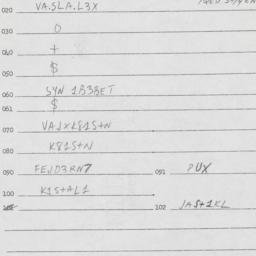 020 VA.SLA.L3X
030 0
040 +
050 $
060 SYN 1B3BET
061 $
070 VAJXL81S+N
080 K81S+N
090 FEJD3RN7 091 PUX
100 K1S+AL1
102 JAS+1KL